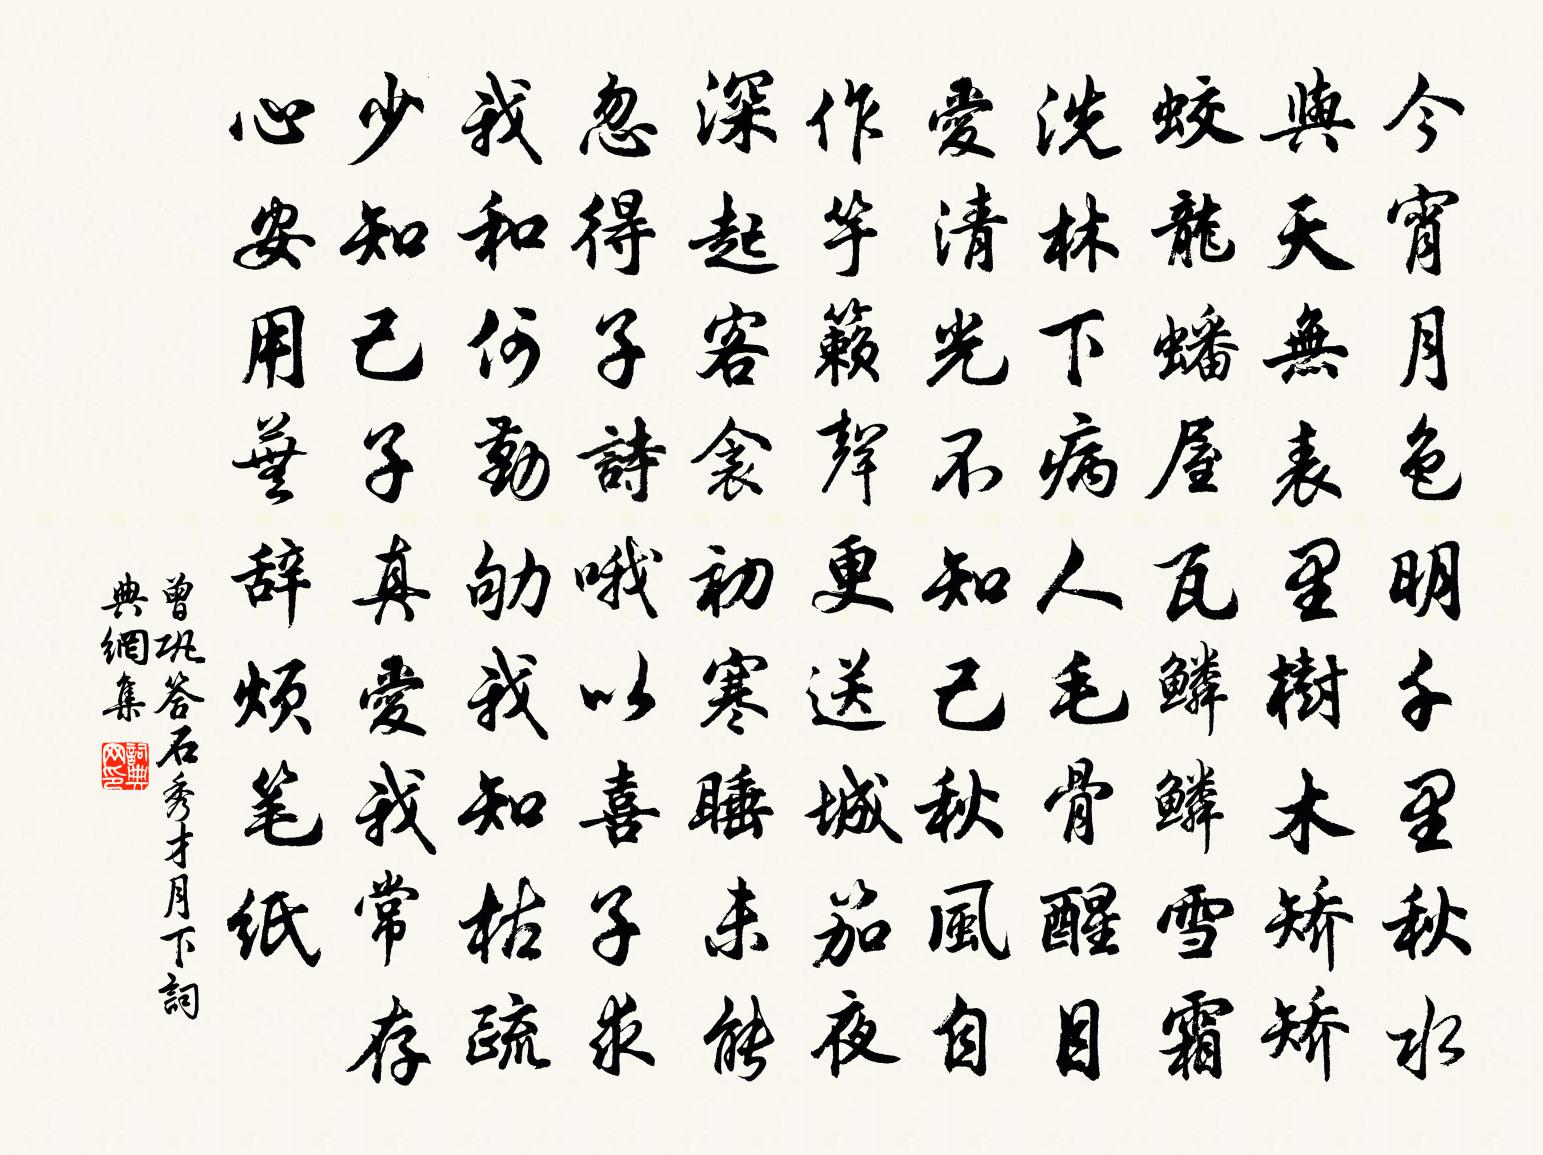 今宵月色明千里秋水
與天無表里樹木矫矫
蛟龍蟠屋瓦鱗鱗雪霜
洗林下病人毛骨醒目
愛清光不知己秋風自
作竽籟聲更送城笳夜
深起客衾初寒睡未能
忽得子詩哦以喜子求
我和何勤劬我知枯疏
少知己子真愛我常存
心安用蕪辞烦笔纸
曾巩答石秀才月下詞
典網集
詞典
网印